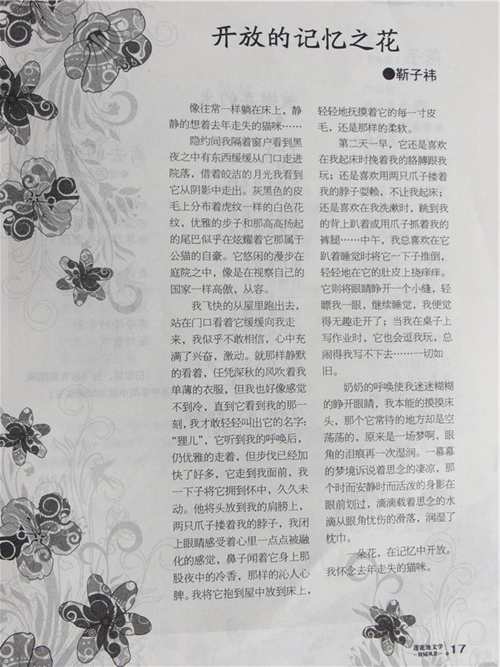 开放的记忆之花
●靳子祎
像往常一样躺在床上，静
静的想着去年走失的猫咪……
隐约间我隔着窗户看到黑
夜之中有东西缓缓从门口走进
院落，借着皎洁的月光我看到
它从阴影中走出。灰黑色的皮
毛上分布着虎纹一样的白色花
纹，优雅的步子和那高高扬起
的尾巴似乎在炫耀着它那属于
公猫的自豪。它悠闲的漫步在
庭院之中，像是在视察自己的
国家一样高傲，从容。
我飞快的从屋里跑出去，
站在门口看着它缓缓向我走
来，我似乎不敢相信，心中充
满了兴奋，激动。就那样静默
的看着，任凭深秋的风吹着我
单薄的衣服，但我也好像感觉
不到冷，直到它看到我的那一
刻，我才敢轻轻叫出它的名字：
“狸儿”，它听到我的呼唤后，
仍优雅的走着，但步伐已经加
快了好多，它走到我面前，我
一下子将它拥到怀中，久久未
动。他将头放到我的肩膀上，
两只爪子搂着我的脖子，我闭
上眼睛感受着心里一点点被融
化的感觉，鼻子闻着它身上那
股夜中的冷香，那样的沁人心
脾。我将它抱到屋中放到床上，
轻轻地抚摸着它的每一寸皮
毛，还是那样的柔软。
第二天一早，它还是喜欢
在我起床时挽着我的胳膊跟我
玩；还是喜欢用两只爪子搂着
我的脖子耍赖，不让我起床；
还是喜欢在我洗漱时，跳到我
的背上趴着或用爪子抓着我的
裤腿……中午，我总喜欢在它
趴着睡觉时将它一下子推倒，
轻轻地在它的肚皮上挠痒痒。
它则将眼睛睁开一个小缝，轻
瞟我一眼，继续睡觉，我便觉
得无趣走开了；当我在桌子上
写作业时，它也会逗我玩，总
闹得我写不下去……一切如
旧。
奶奶的呼唤使我迷迷糊糊
的睁开眼睛，我本能的摸摸床
头，那个它常待的地方却是空
荡荡的，原来是一场梦啊，眼
角的泪痕再一次湿润。一幕幕
的梦境诉说着思念的凄凉，那
个时而安静时而活泼的身影在
眼前划过，滴滴载着思念的水
滴从眼角忧伤的滑落，润湿了
枕巾。
一朵花，在记忆中开放。
我怀念去年走失的猫咪。
17